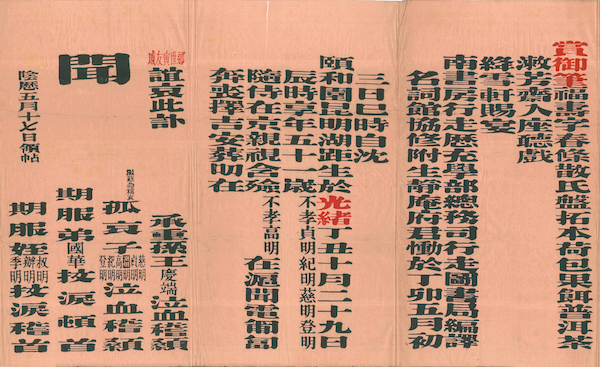 賞御筆福壽字春條散氏盤拓本荷包果餌普洱茶
漱芳齋入座聽戲
綠雲軒賜宴
南書房行走歷充學部總務司行走圖書局編譯
名詞館協修附生靜庵府君慟於丁卯五月初
三日巳時自沈
頤和園昆明湖距生於光緒丁丑十月二十九日
辰時享年五十一歲不孝貞明紀明慈明登明
隨侍在京親視含殮不孝高明在滬聞電匍匐
奔喪擇吉安葬叨在
鄉世寅友戚誼哀此訃
聞
陰曆五月十七日領帖
承重孫王慶端泣血稽顙
孤哀子慈明貞明高明紀明登明泣血稽顙
期服弟國華抆淚頓首
期服姪叔明辯明季明抆淚稽首